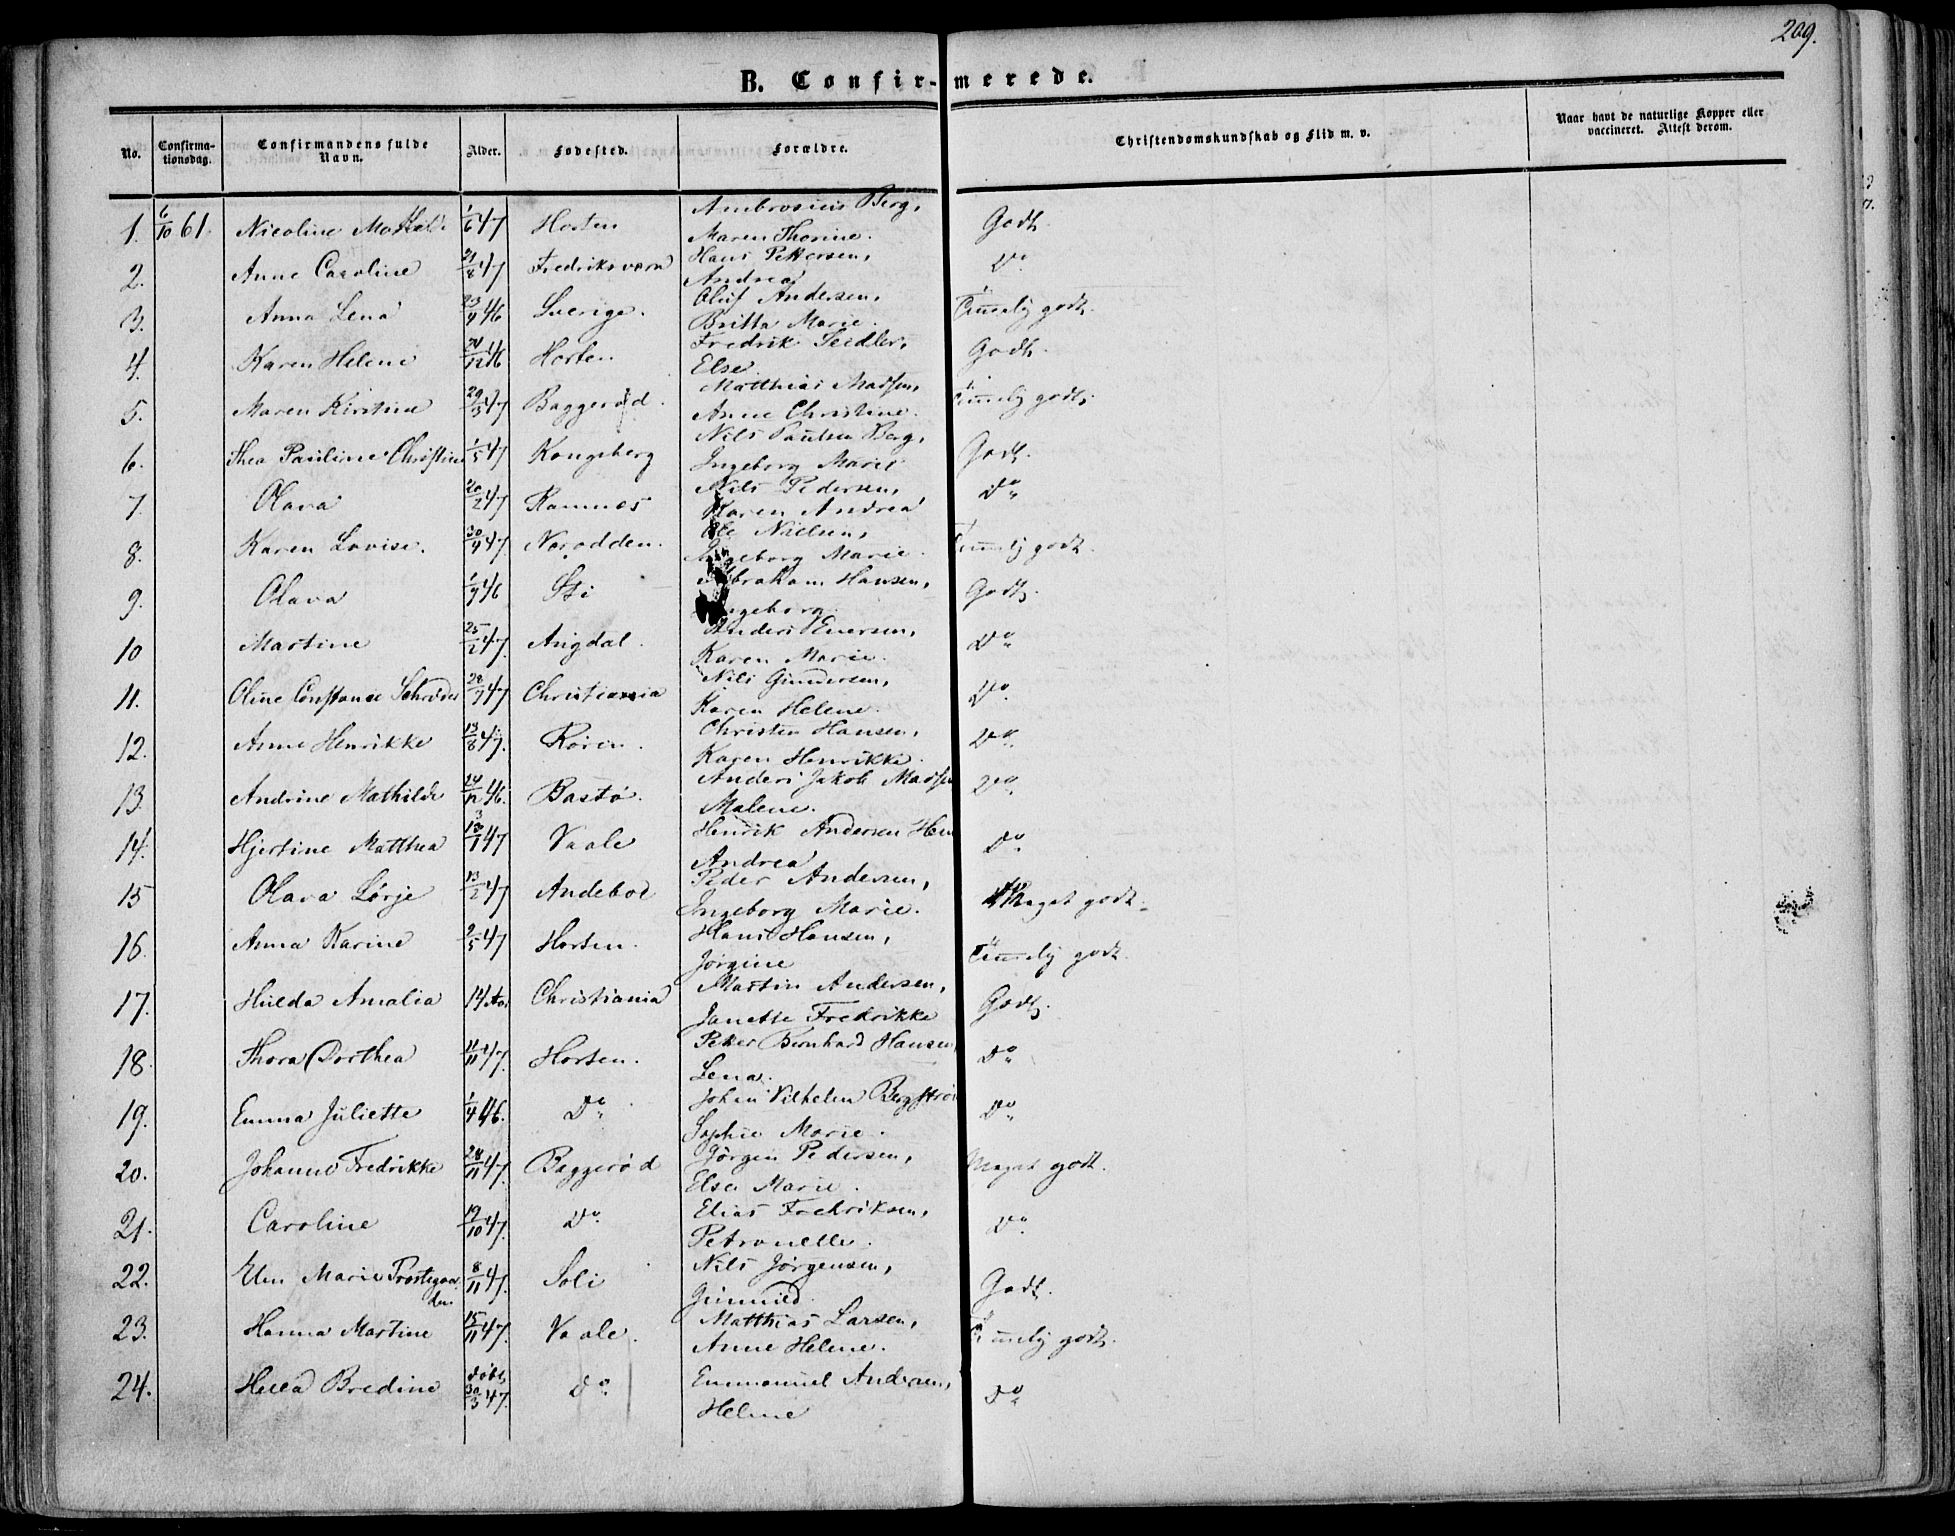 209.
B. Confir-merede.
No. Confirma-tionsdag. Confirmandens fulde Navn. Alder. Fødested. Forældre. Christendomskundskab og Flid m. v. Naar havt de naturlige Kopper eller vaccineret. Attest derom.
1. 6/10 61. Nicoline Mathilde 1/6 47 Horten Ambrosius Berg, Godt.
Maren Thorine.
2. Anne Caroline 21/8 47 Fredriksværn Hans Pettersen, Do
Andrea
3. Anna Lena 23/9 46 Sverige. Oluf Andersen, Temmelig godt.
Britta Marie.
4. Karen Helene 21/12 46 Horten Fredrik Seidler, Godt.
Else.
5. Maren Kirstine 29/3 47 Baggerød. Matthias Madsen, Temmelig godt.
Anne Christine.
6. Thea Pauline Christine 1/5 47 Kongsberg Nils Paulsen Berg, Godt.
Ingeborg Marie
7. Olava 20/2 47 Ramnes Nils Pedersen, Do
Karen Andrea
8. Karen Lovise. 30/4 47 Narodden. Ole Nielsen, Temmelig godt.
Ingeborg Marie.
9. Olava 1/9 46 Abraham Hansen, Godt.
Ingeborg.
10 Martine 25/2 47. Angdal. Anders Enersen, Do
Karen Marie.
11. Oline Constance Schrøder 28/7 47 Christiania Nils Gundersen, Do
Karen Helene.
12. Anne Henrikke 13/8 47. Røren. Christen Hansen, Do
Karen Henrikke.
13. Andrine Mathilde 14/12 46. Bastø. Anders Jakob Madsen Do
Malene.
14. Hjertine Matthea 13/1 47 Vaale Henrik Andersen Do
Andrea
15 Olava Lørje 13/2 47 Andebod Peder Andersen, Meget godt.
Ingeborg Marie.
16. Anna Karine 2/5 47 Horten. Hans Hansen, Temmelig godt.
Jørgine
17. Hulda Amalia 14 Aar Christiania Martin Andersen, Godt.
Janette Fredrikke
18. Thora Dorthea 11/11 47. Horten. Petter Bernhard Hansen, Do
Lena.
19. Emma Juliette 1/4 46. Do Johan Vilhelm Bergstrøm Do
Sophie Marie.
20. Johanne Fredrikke 28/11 47. Baggerød Jørgen Pedersen, Meget godt.
Else Marie.
21. Caroline 19/10 47. Do Elias Fredriksen, Do
Petronelle.
22. Elen Marie Prostegaarden 8/11 47. Soli Nils Jørgensen, Godt.
Gunnild.
23. Hanna Martine 15/11 47. Vaale. Matthias Larsen, Temmelig godt.
Anne Helene.
24. Bredine døbt 30/3 47. Do Emmanuel Andersen, Do
Helene